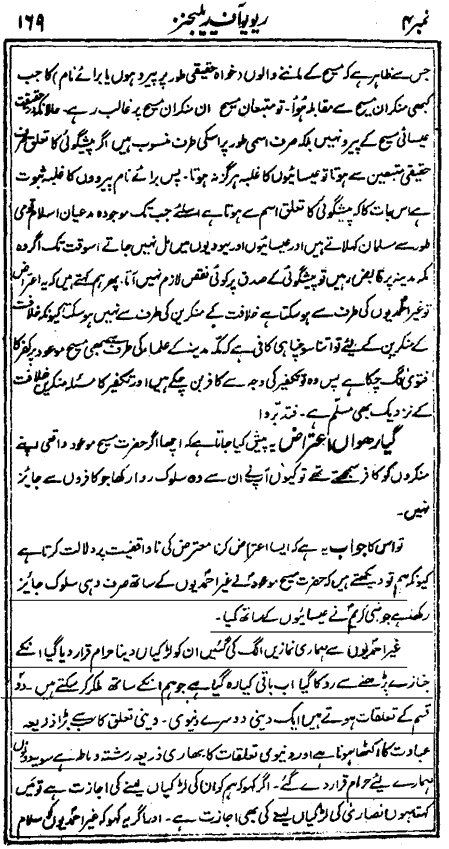 نمبر ۴ ریویو آف ریلیجنز ۱۶۹
جس سے ظاہر ہے کہ مسیح کے ماننے والوں دخواہ حقیقی طور پر پیرو ہوں یا برائے نام) کا جب
کبھی منکران مسیح سے مقابلہ ہؤا۔ تو متبعان مسیح ان منکران مسیح پر غالب رہے۔ حالانکہ درحقیقت
عیسائی مسیح کے پیرو نہیں بلکہ صرف اسمی طور پر اسکی طرف منسوب ہیں اگر پیشگوئی کا تعلق صرف
حقیقی متبعین سے ہوتا تو عیسائیوں کا غلبہ ہرگز نہ ہوتا۔ پس برائے نام پیروؤں کا غلبہ ثبوت
ہے اس بات کا کہ پیشگوئی کا تعلق اسم سے ہوتا ہے اسلئے جب تک موجودہ مدعیان اسلام قومی
طور سے مسلمان کہلاتے ہیں اور عیسائیوں اور یہودیوں میں مل نہیں جاتے اسوقت تک اگر وہ
مکہ مدینہ پر قابض رہیں تو پیشگوئی کے صدق پر کوئی نقص لازم نہیں آتا۔ پھر ہم کہتے ہیں کہ یہ اعتراض
تو غیر احمدیوں کی طرف سے ہو سکتا ہے خلافت کے منکرین کی طرف سے نہیں ہو سکتا کیونکہ خلافت
کے منکرین کے لئے تو اتنا سوچنا ہی کافی ہے کہ مکہ مدینہ کے علماء کی طرف سے بھی مسیح موعود پر کفر کا
فتویٰ لگ چکا ہے پس وہ تو تکفیر کی وجہ سے کافر بن چکے ہیں اور تکفیر کا مسئلہ منکرین خلافت
کے نزدیک بھی مسلّم ہے۔ فتدبّروا
گیارھواں اعتراض یہ پیش کیا جاتا ہے کہ اچھا اگر حضرت مسیح موعود واقعی اپنے
منکروں کو کافر سمجھتے تھے تو کیوں آپ نے ان سے وہ سلوک روا رکھا جو کافروں سے جائز
نہیں۔
تو اس کا جواب یہ ہے کہ ایسا اعتراض کرنا معترض کی ناواقفیت پر دلالت کرتا ہے
کیونکہ ہم تو دیکھتے ہیں کہ حضرت مسیح موعود نے غیر احمدیوں کے ساتھ صرف وہی سلوک جائز
رکھا ہے جو نبی کریم نے عیسائیوں کے ساتھ کیا۔
غیر احمدیوں سے ہماری نمازیں الگ کی گئیں ان کو لڑکیاں دینا حرام قرار دیا گیا انکے
جنازے پڑھنے سے روکا گیا اب باقی کیا رہ گیا ہے جو ہم انکے ساتھ ملکر کر سکتے ہیں۔ دو
قسم کے تعلقات ہوتے ہیں ایک دینی دوسرے دنیوی۔ دینی تعلق کا سب سے بڑا ذریعہ
عبادت کا اکٹھا ہونا ہے اور دنیوی تعلقات کا بھاری ذریعہ رشتہ و ناطہ ہے سو یہ دونوں
ہمارے لئے حرام قرار دے گئے۔ اگر کہو کہ ہم کو ان کی لڑکیاں لینے کی اجازت ہے تو میں
کہتا ہوں نصاریٰ کی لڑکیاں لینے کی بھی اجازت ہے۔ اور اگر یہ کہو کہ غیر احمدیوں کو سلام